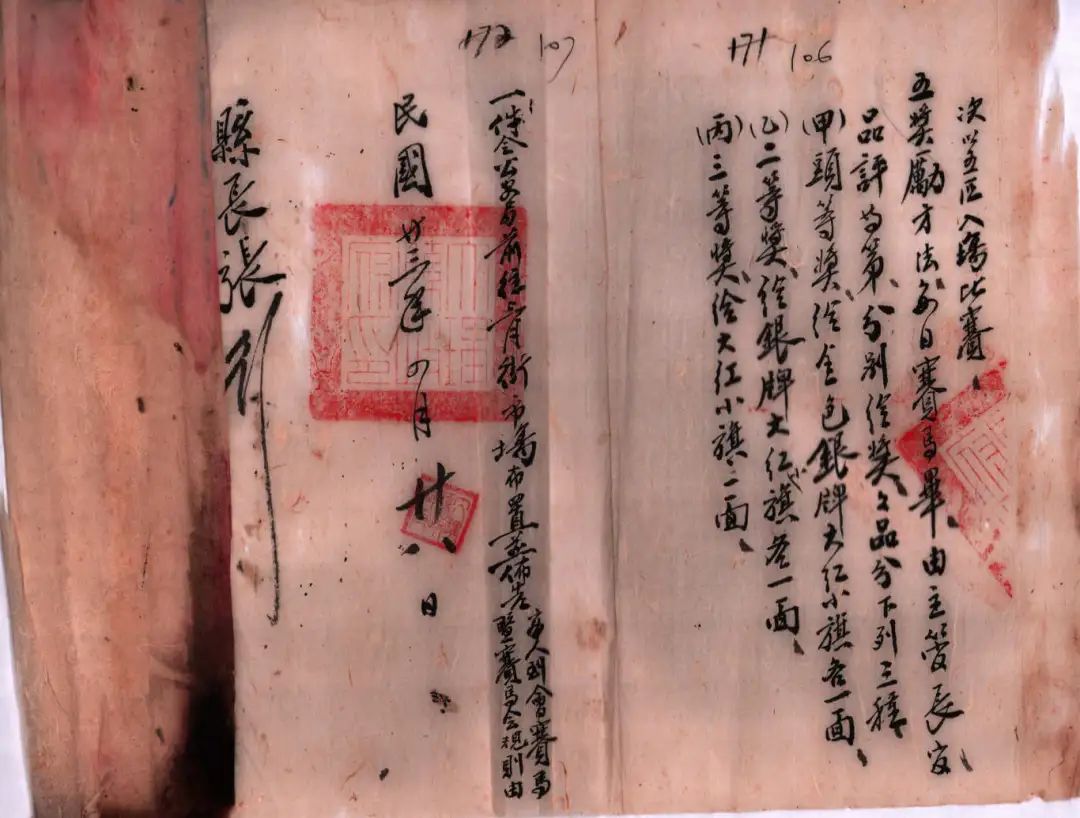 171 106
次以五區入場比賽、
五獎勵方法每日賽馬畢、由主管長官
品評等第、分別給獎、々品分下列三種
(甲)頭等獎、給金包銀牌大紅小旗各一面、
(乙)二等獎、給銀牌大紅旗各一面、
(丙)三等獎、給大紅小旗二面、
172 107
一件令公安局前往三月街市場布置並佈告
人到會賽馬
暨賽馬會規則由
民國廿三年四月廿八日
縣長張